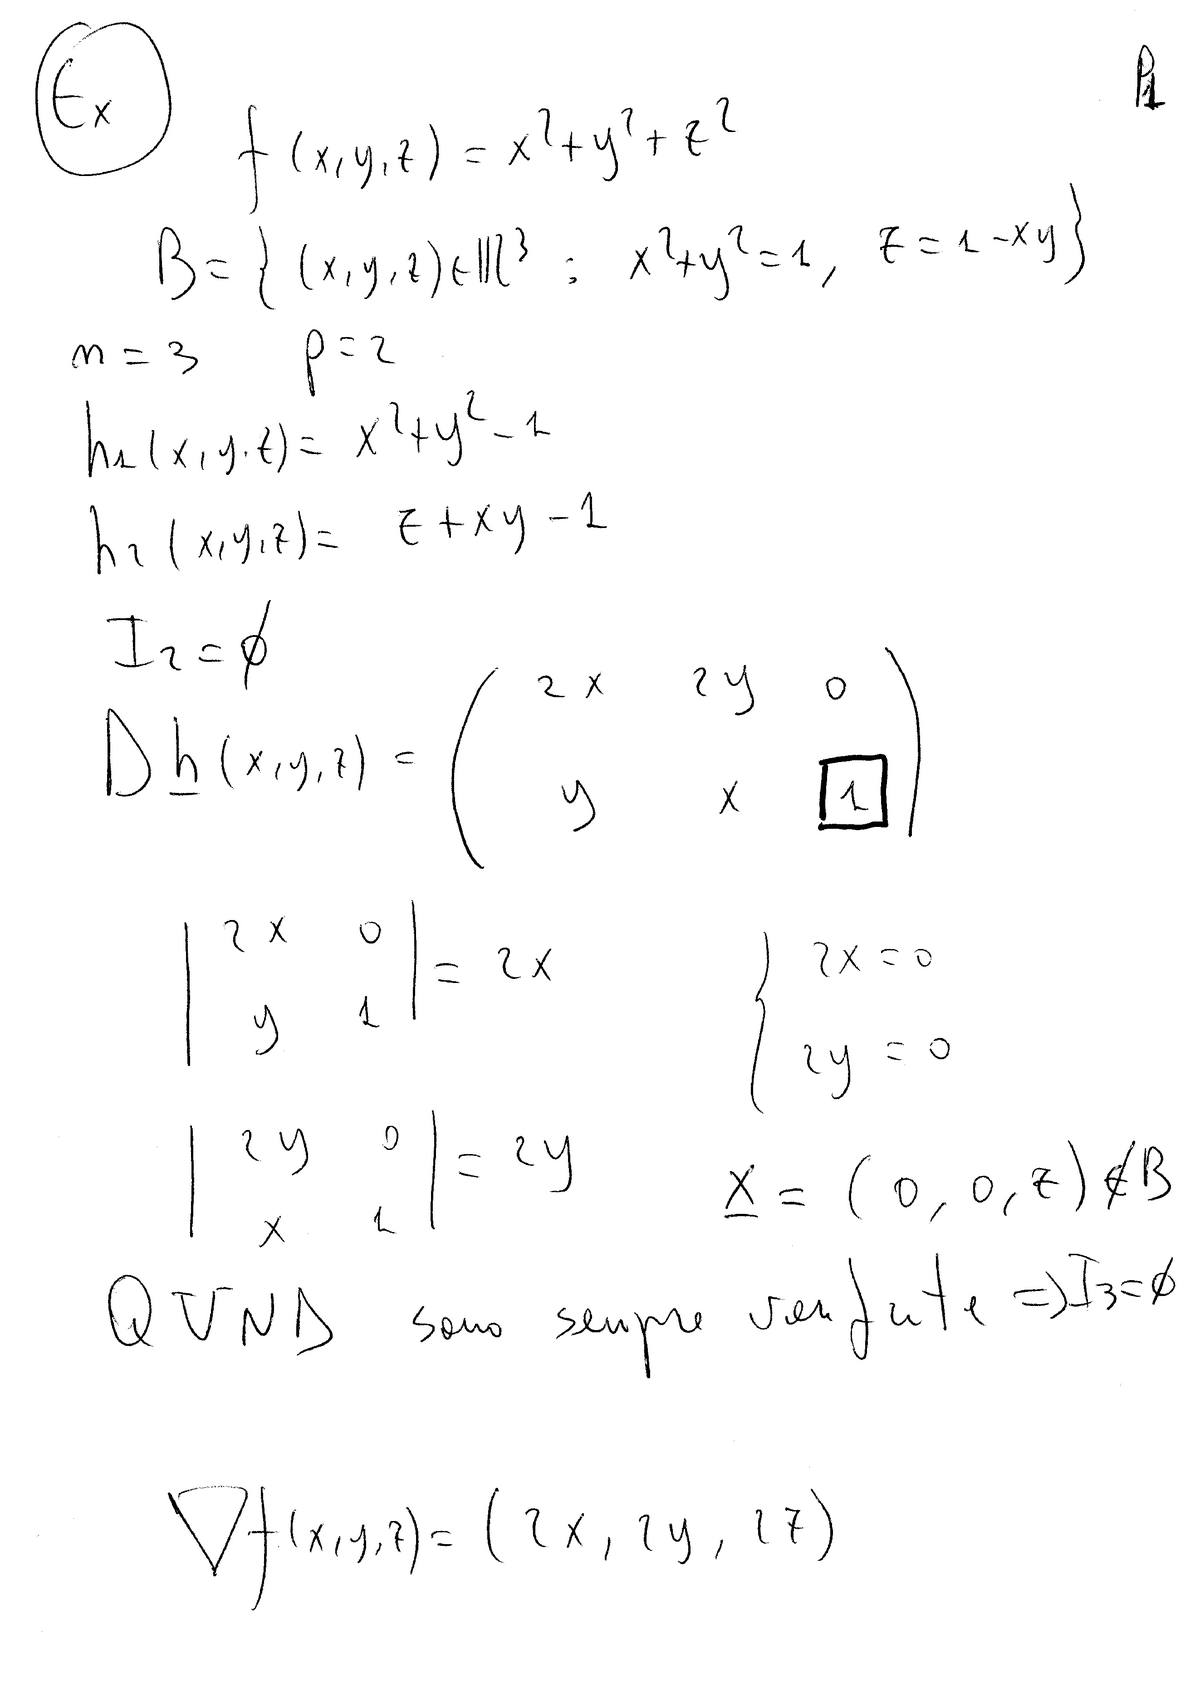 Ex
P1
f(x,y,z) = x²+y²+z²
B = { (x,y,z) ∈ ℝ³ : x²+y²=1, z=1-xy}
n = 3 p = 2
h1(x,y,z) = x²+y²-1
h2(x,y,z) = z+xy-1
I2 = ∅
Dh(x,y,z) = ( 2x 2y 0
y x 1 )
| 2x 0
y 1 | = 2x
{ 2x = 0
2y = 0
| 2y 0
x 1 | = 2y
x = (0,0,z) ∉ B
QVND sono sempre verificate ⇒ I3=∅
∇f(x,y,z) = (2x, 2y, 2z)